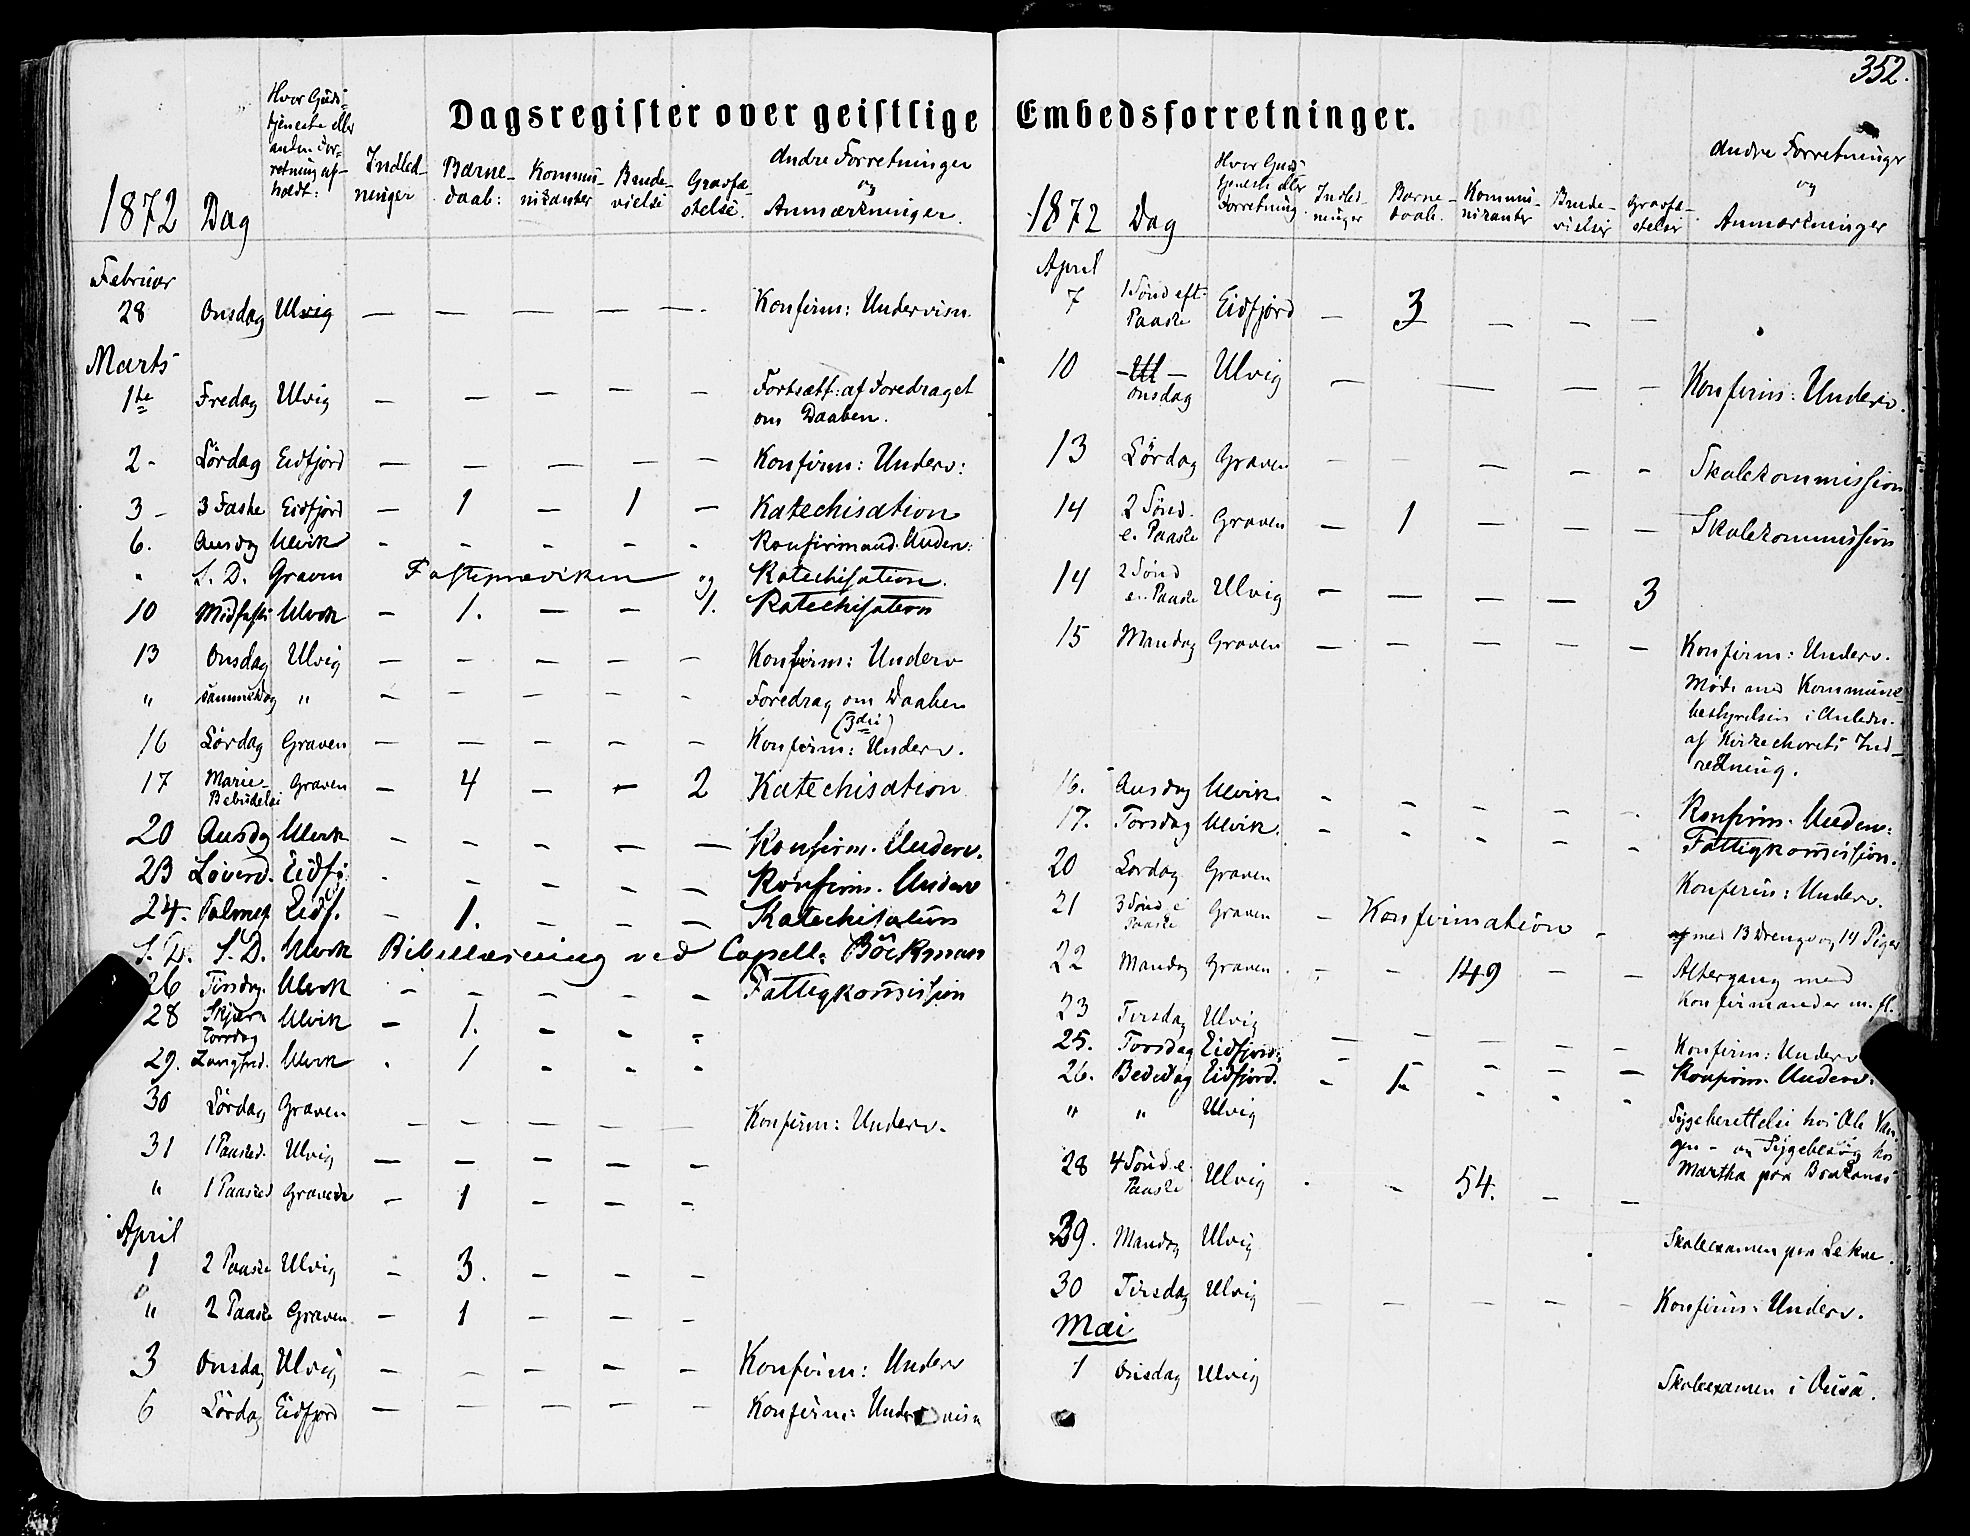 352.
Dagsregister over geistlige Embedsforretninger.
1872 Dag Hvor Guds-
tjeneste eller
anden For-
retning af-
holdt: Indled-
ninger Barne-
daab: Kommu-
nikanter Brude-
vielse Gravfæ-
stelse. Andre Forretninger
og
Anmærkninger.
Februar
28 Onsdag Ulvig — — — — — Konfirm: Undervisn.
Marts
1te Fredag Ulvig — — — — — Fortsætt: af Foredraget
om Daaben.
2 - Lördag Eidfjord — — — — — Konfirm: Underv:
3 - 3 Faste Eidfjord — 1 — 1 — Katechisation
6. Onsdag Ulvik - - - - - Konfirmand. Underv:
" S. D. Graven Fasteprædiken og Katechisation.
10 Midfaste Ulvik — 1. — — 1. Katechisation
13 Onsdag Ulvig — — — — — Konfirm: Underv
" sammedag " — — — — — Foredrag om Daaben
(3die)
16 Lördag Graven — — — — — Konfirm: Underv.
17 Marie-
Bebudelse Graven — 4 — — 2 Katechisation
20 Onsdag Ulvik - - - — — Konfirm. Underv.
23 Løverd. Eidfj. - - - - — Konfirm. Underv
24. Palmes. Eidf. - 1. - - — Katechisation
S. D. S. D. Ulvik Bibellæsning ved Capell: Böckman
26 Tirsdag. Ulvik - - - - - Fattigkommission
28 Skjær-
Torsdag Ulvik — 1. - - -
29. Langfred. Ulvik - 1 - - -
30 Lördag Graven — — — — — Konfirm: Underv.
31 1 Paasked. Ulvig — — — — —
" 1 Paasked Graven — 1 — — —
April
1 2 Paaske Ulvig — 3. — — —
" 2 Paaske Graven — 1 — — —
3 Onsdag Ulvig — — — — — Konfirm: Underv
6 Lördag Eidfjord — — — — — Konfirm: Undervisn
1872 Dag Hvor Guds-
tjeneste eller
Forretning Indled-
ninger Barne-
daab. Kommu-
nikanter Brude-
vielser Gravfæ-
stelser Andre Forretninger
og
Anmærkninger
April
7 1 Sönd eft.
Paaske Eidfjord — 3 — — —
10 Onsdag Ulvig — — — — Konfirm: Underv.
13 Lördag Graven — — — — — Skolekommission
14 2 Sönd.
e. Paaske Graven — 1 — — — Skolekommission
14 2 Sönd
e. Paaske Ulvig — — — — 3
15 Mandag Graven — — — — — Konfirm: Underv.
Möde med Kommune-
bestyrelsen i Anledn.
af Kirkechorets Ind-
redning.
16. Onsdag Ulvik - - - - - Konfirm. Underv:
17. Torsdag Ulvik. - - - - - Fattigkommission.
20 Lördag Graven Konfirm: Underv.
21 3 Sönd e
Paaske Graven — Konfirmation - med 13 Drenge og 14 Piger
22 Mandag Graven - - 149 — — Altergang med
Konfirmander m. fl.
23 Tirsdag Ulvig — — — — — Konfirm: Underv
25. Torsdag Eidfjord. - - - - — Konfirm. Underv.
26. Bededag Eidfjord. - 1 - - -
" " Ulvig Sygeberettelse hos Ole Van-
gen - og Sygebesög hos
Martha paa Brakanæs
28 4 Sönd. e.
Paaske Ulvig - - 54. — —
29. Mandag Ulvig Skoleexamen paa Lekve.
30 Tirsdag Ulvig — — — — — Konfirm: Underv.
Mai
1 Onsdag Ulvig Skoleexamen i Ousa.